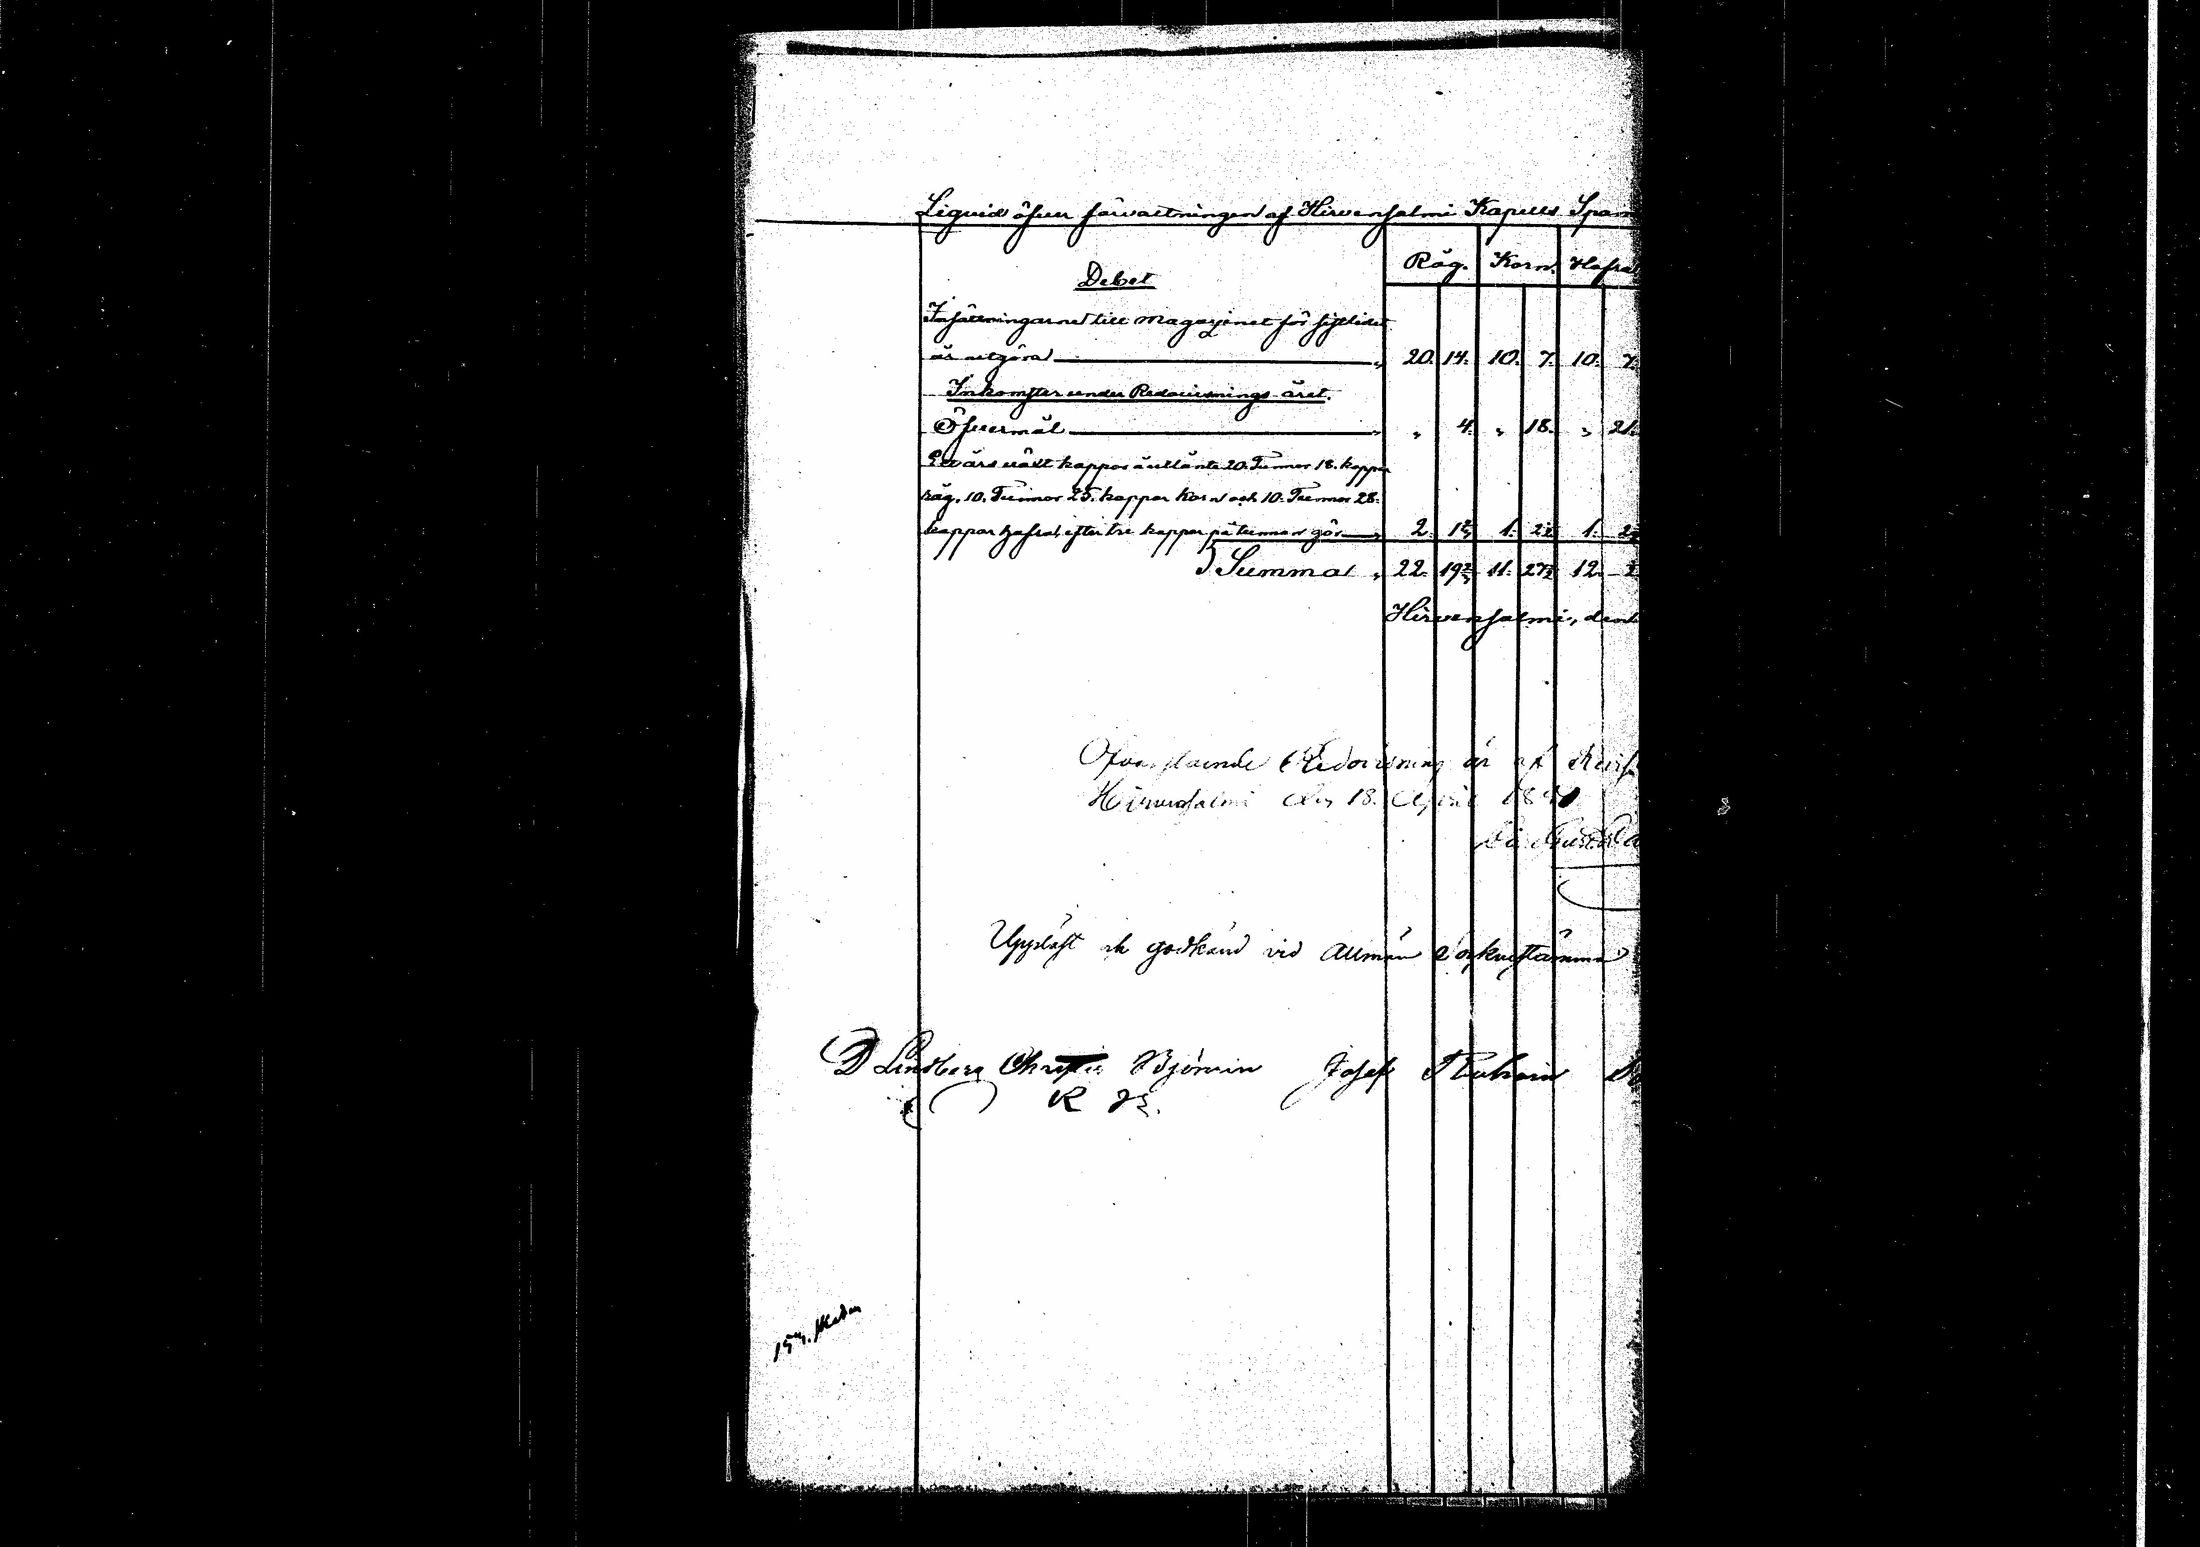 Liquid öfver förvaltningen af Hirvensalmi Kapells Span
Råg. Korn. Hafra
Debet
Insättningarne till magazinet för sistlidet
år utgöra 20. 14. 10. 7. 10. 7.
Inkomster under Redovisnings-året.
Öfvermål " 4. " 18. " 21.
Ett års växt kappor å utlånte 20. Tunnor 18. kappar
råg, 10. Tunnor 25. kappar korn och 10. Tunnor 28.
kappar hafra, efter tre kappar på tunnan gör 2. 1. 1.
Summa 22. 11. 12.
Hirvensalmi, den
Ofvanstående Redovisning är af
Hirvensalmi den 18. April
Uppläst och godkänd vid allmän Sockenstämma
D Lindberg Christer Björnin Josef